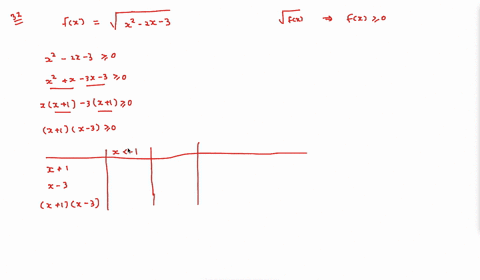 32 f(x) = √(x² - 2x - 3) √f(x) ⇒ f(x) ≥ 0
x² - 2x - 3 ≥ 0
x² + x - 3x - 3 ≥ 0
x(x+1) - 3(x+1) ≥ 0
(x+1)(x-3) ≥ 0
x < -1
x + 1
x - 3
(x+1)(x-3)